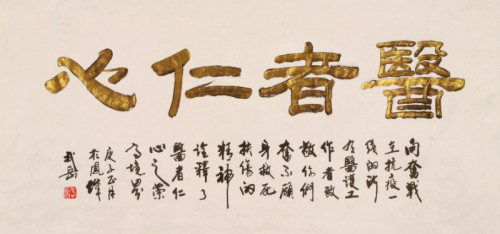 醫者仁心
向奮戰
在抗疫一
线的所
有醫護工
作者致
敬你們
奮不顧
身救死
扶傷的
精神
詮釋了
醫者仁
心之崇
高境界
庚子正月
於鳳城